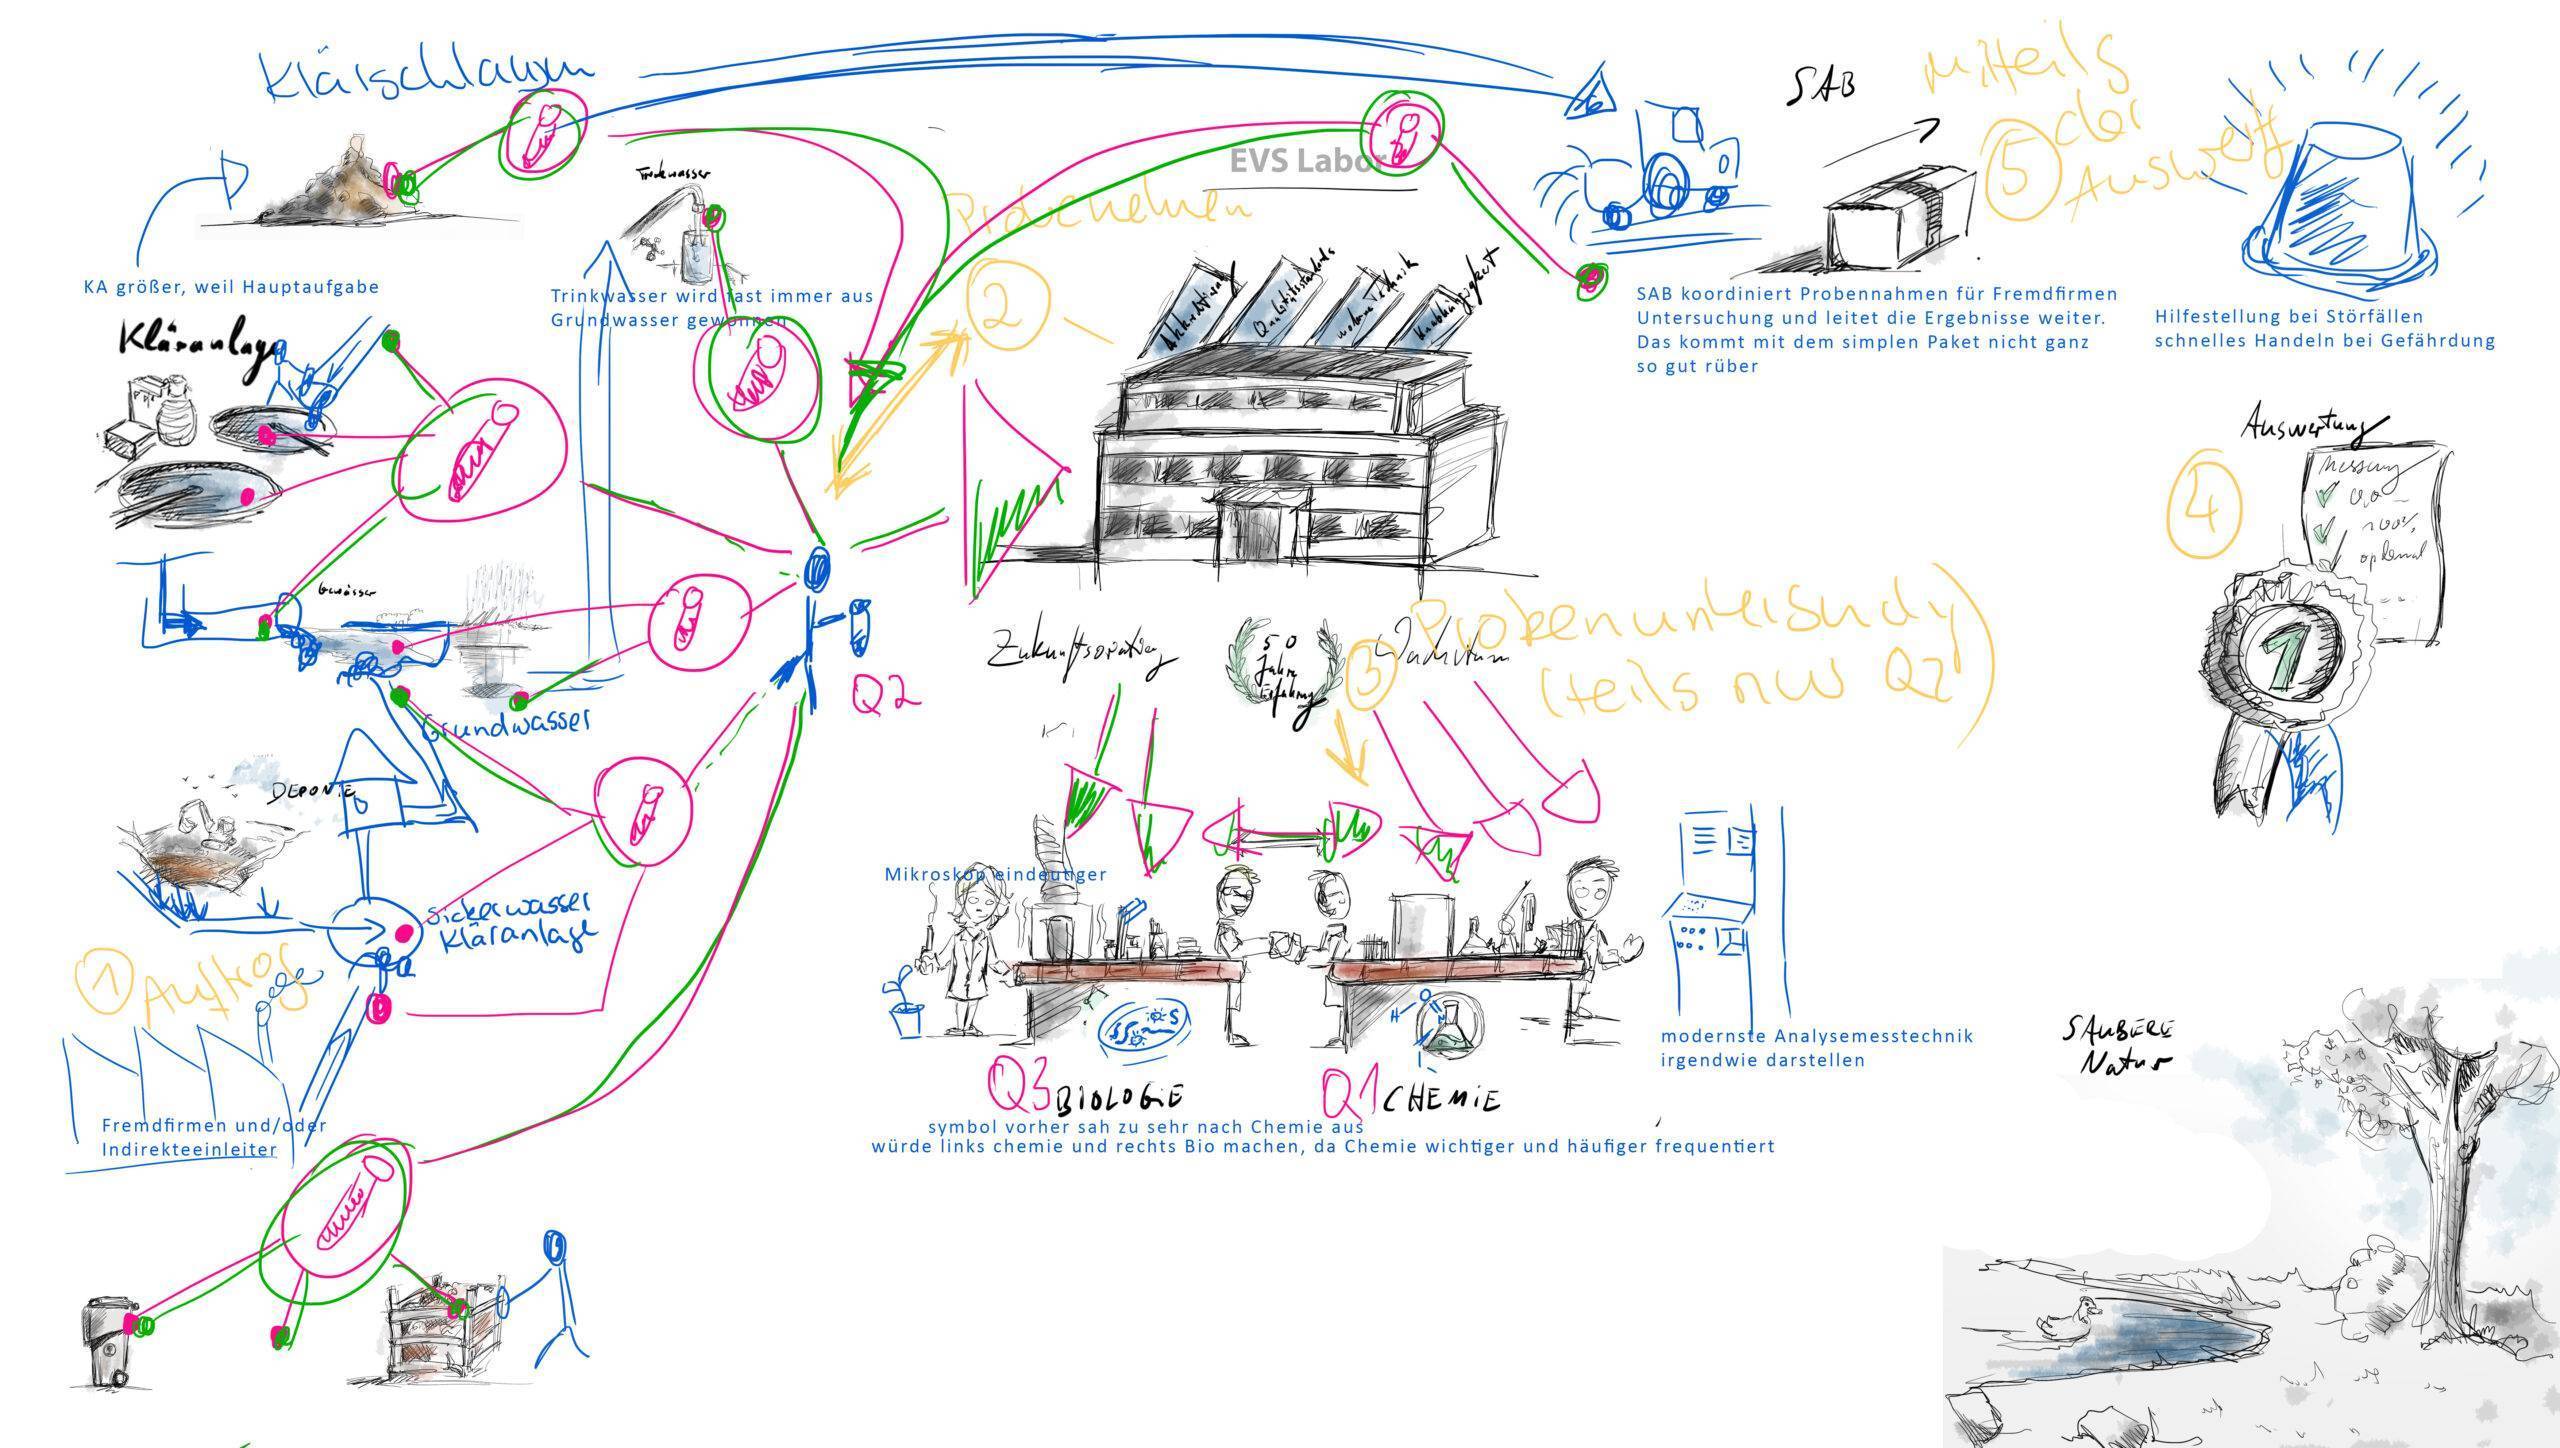 Klärschlamm
SAB
Mitteilg
der
Auswert
5
EVS Labor
Trinkwasser
Probenehmen
2
KA größer, weil Hauptaufgabe
Trinkwasser wird fast immer aus
Grundwasser gewonnen
SAB koordiniert Probennahmen für Fremdfirmen
Untersuchung und leitet die Ergebnisse weiter.
Das kommt mit dem simplen Paket nicht ganz
so gut rüber
Hilfestellung bei Störfällen
schnelles Handeln bei Gefährdung
Kläranlage
Akkreditierung
Qualitätsstandards
moderne Technik
Unabhängigkeit
Auswertung
Messung
100%
optimal
4
1
Gewässer
Grundwasser
Q2
50
Jahre
Erfahrung
3
Wachstum
Probenuntersuchg
(teils nur Q2)
DEPONIE
Sickerwasser
Kläranlage
1 Auftrag
Mikroskop eindeutiger
modernste Analysemesstechnik
irgendwie darstellen
SAUBERE
Natur
Q3 BIOLOGIE
Q1 CHEMIE
Fremdfirmen und/oder
Indirekteeinleiter
symbol vorher sah zu sehr nach Chemie aus
würde links chemie und rechts Bio machen, da Chemie wichtiger und häufiger frequentiert